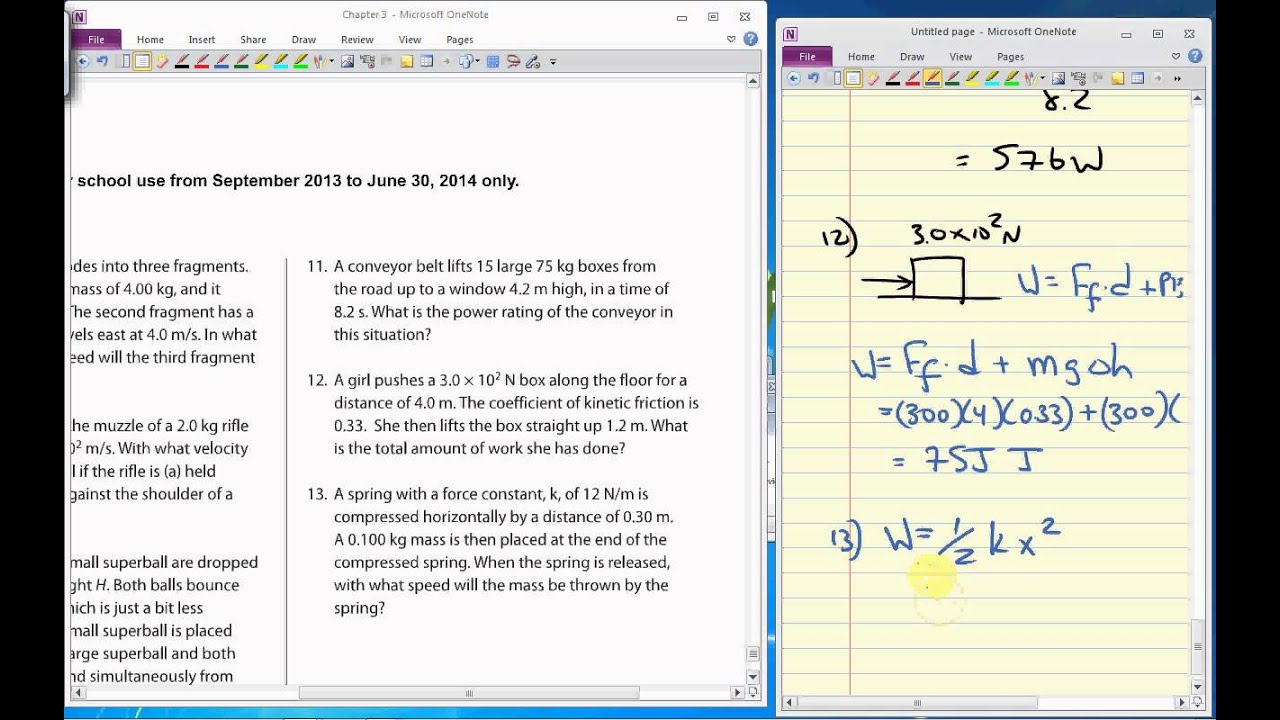 Chapter 3 - Microsoft OneNote
File Home Insert Share Draw Review View Pages
school use from September 2013 to June 30, 2014 only.
odes into three fragments.
mass of 4.00 kg, and it
The second fragment has a
vels east at 4.0 m/s. In what
eed will the third fragment
he muzzle of a 2.0 kg rifle
0² m/s. With what velocity
l if the rifle is (a) held
gainst the shoulder of a
mall superball are dropped
ght H. Both balls bounce
hich is just a bit less
mall superball is placed
arge superball and both
nd simultaneously from
11. A conveyor belt lifts 15 large 75 kg boxes from
the road up to a window 4.2 m high, in a time of
8.2 s. What is the power rating of the conveyor in
this situation?
12. A girl pushes a 3.0 × 10² N box along the floor for a
distance of 4.0 m. The coefficient of kinetic friction is
0.33. She then lifts the box straight up 1.2 m. What
is the total amount of work she has done?
13. A spring with a force constant, k, of 12 N/m is
compressed horizontally by a distance of 0.30 m.
A 0.100 kg mass is then placed at the end of the
compressed spring. When the spring is released,
with what speed will the mass be thrown by the
spring?
Untitled page - Microsoft OneNote
File Home Draw View Pages
8.2
= 576W
12) 3.0×10² N
W = Ff·d + PE
W = Ff·d + mgΔh
=(300)(4)(0.33)+(300)(
= 75J J
13) W = 1/2 k x²